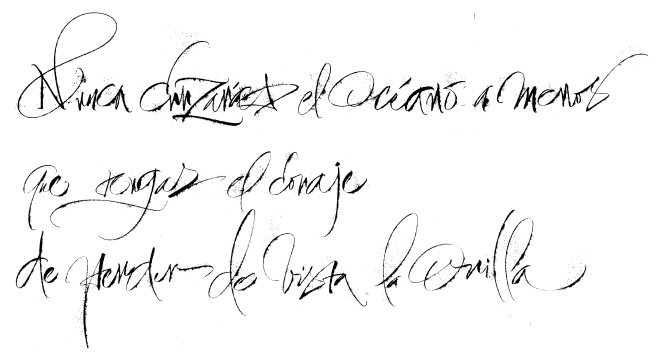 Nunca Cruzarás el Océano a menos
que tengas el coraje
de perder de vista la Orilla